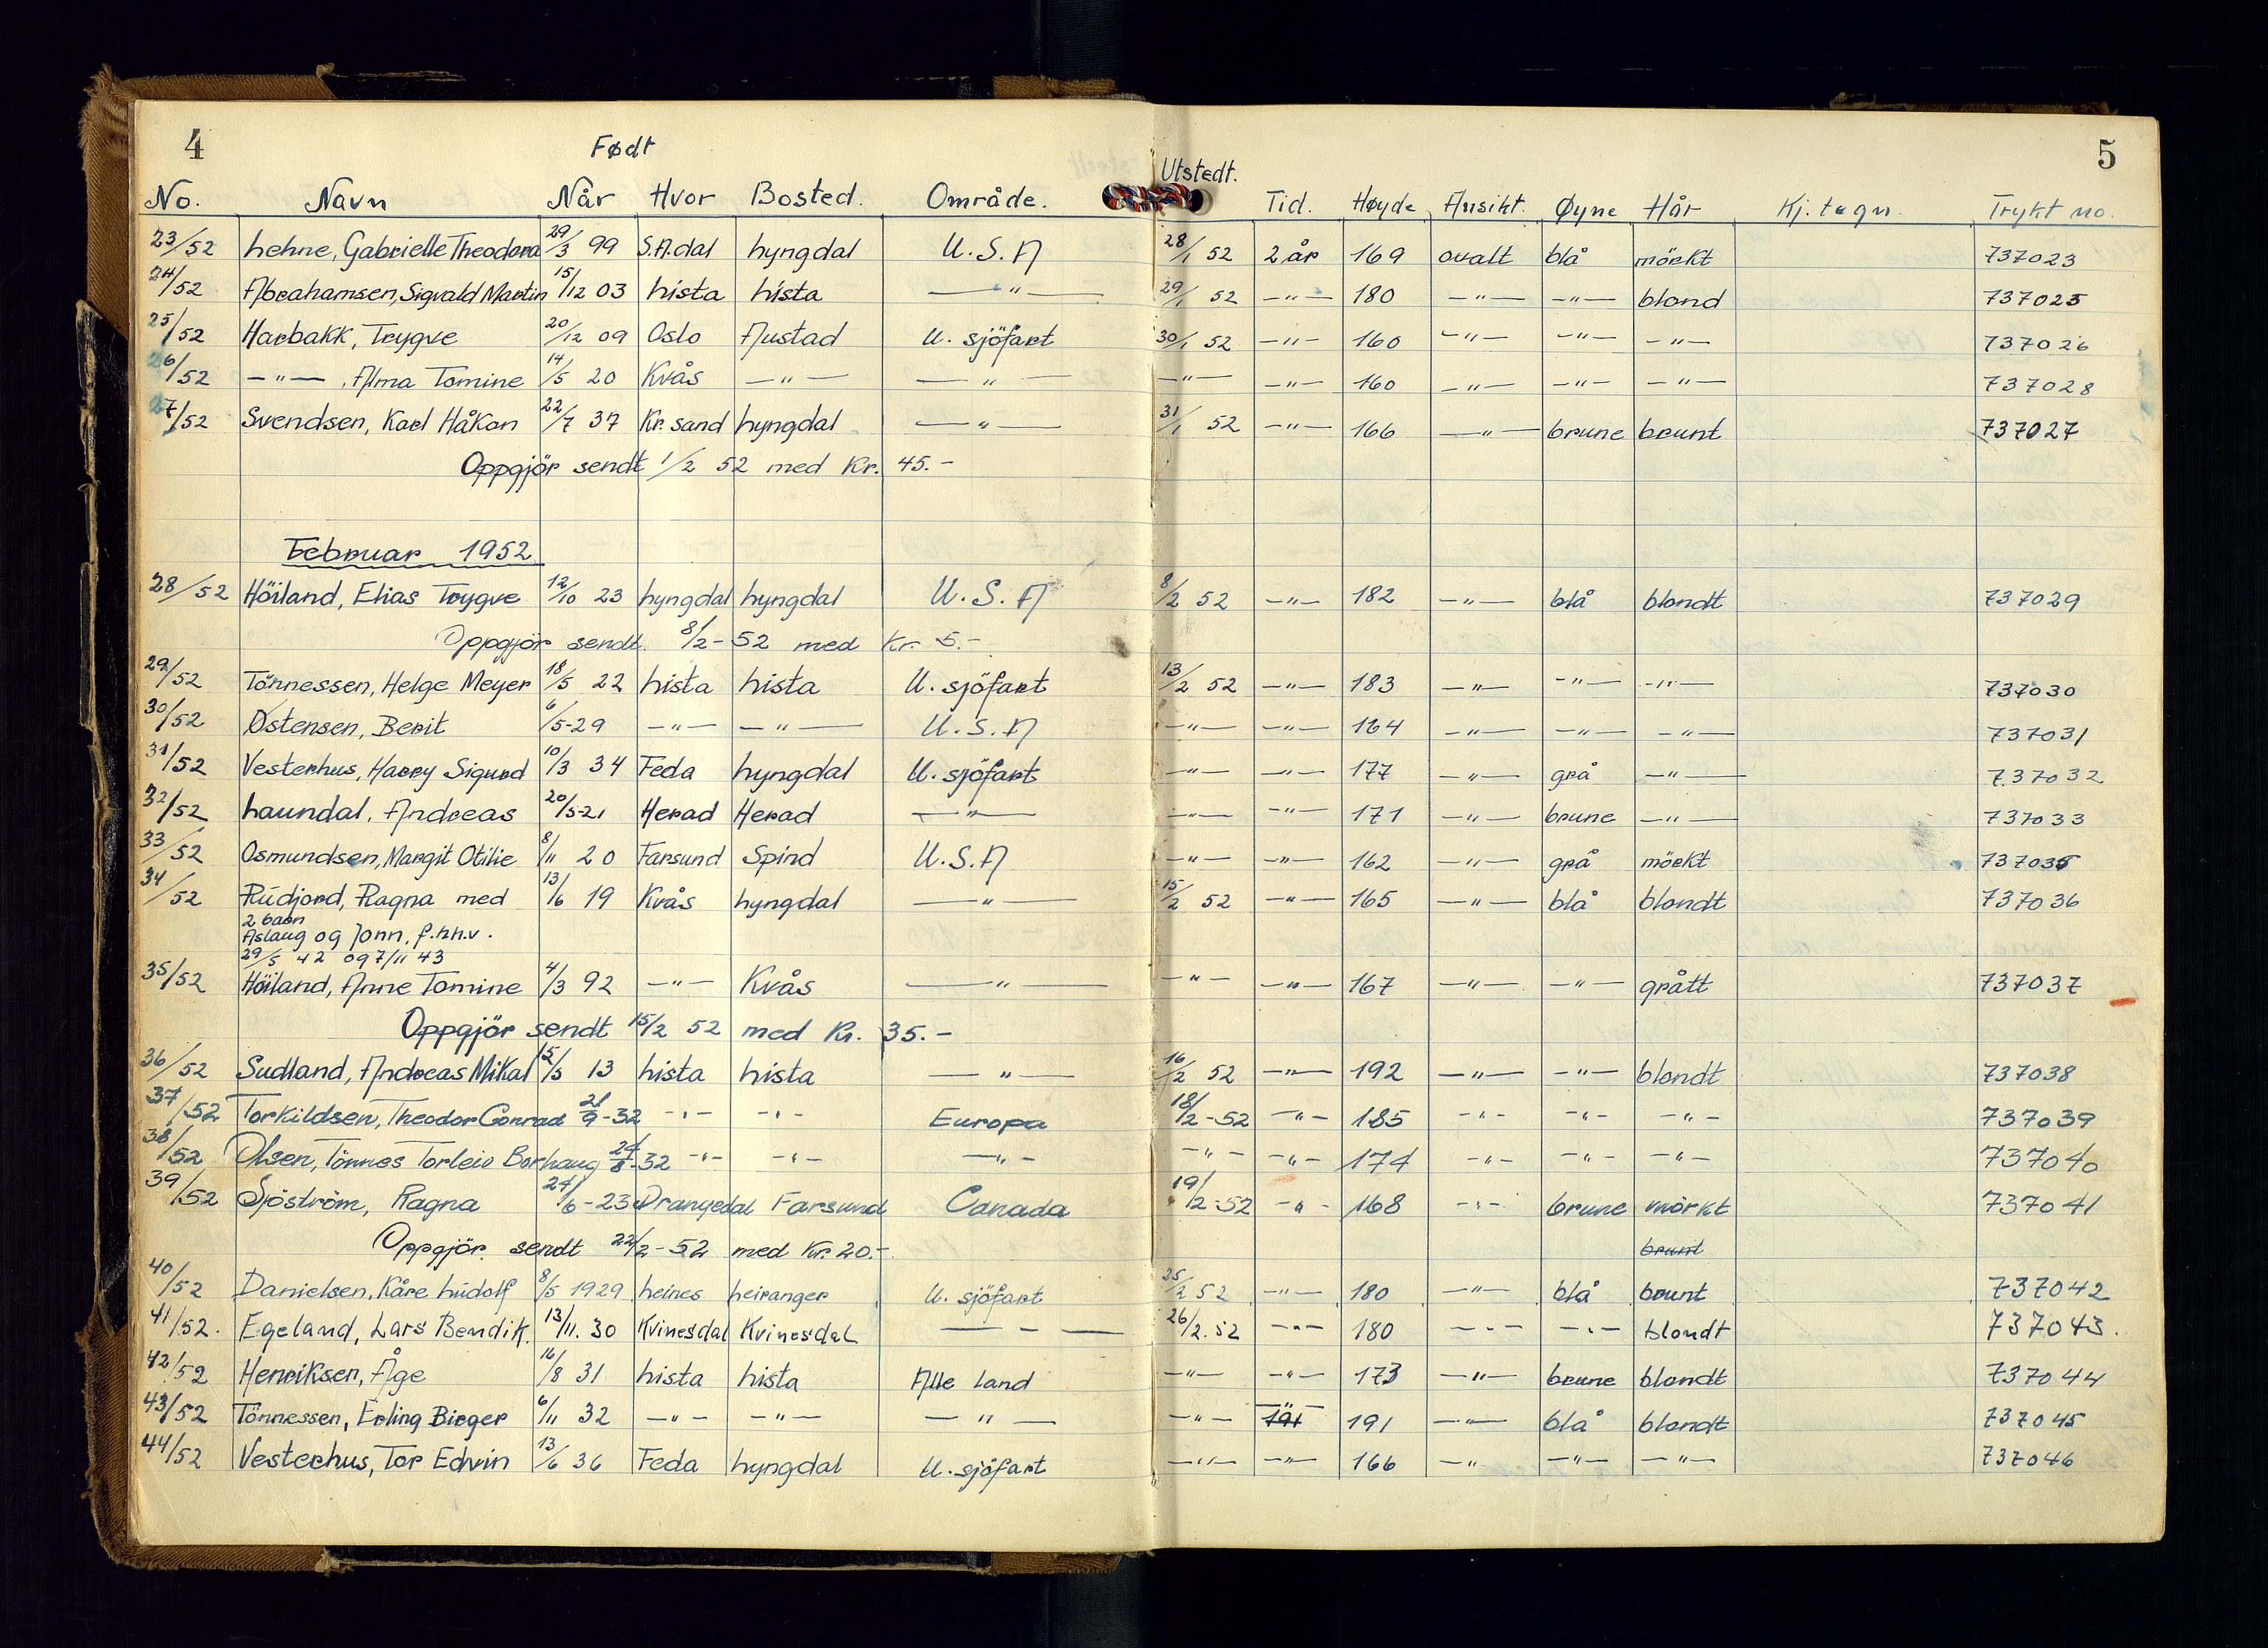 4
Født
Utstedt.
5
No. Navn Når Hvor Bosted. Område. Tid. Høyde Ansikt. Øyne Hår Kj.tegn. Trykt no.
23/52 Lehne, Gabrielle Theodora 29/3 99 S.A.dal Lyngdal U.S.A 28/1 52 2 år 169 ovalt blå mörkt 737023
24/52 Abrahamsen, Sigvald Martin 15/12 03 Lista Lista —"— 29/1 52 —"— 180 —"— —"— blond 737025
25/52 Harbakk, Trygve 20/12 09 Oslo Austad U. sjöfart 30/1 52 —"— 160 —"— —"— —"— 737026
26/52 —"—, Alma Tomine 14/5 20 Kvås —"— —"— —"— —"— 160 —"— —"— —"— 737028
27/52 Svendsen, Karl Håkon 22/7 37 Kr.sand Lyngdal —"— 31/1 52 —"— 166 —"— brune brunt 737027
Oppgjör sendt 1/2 52 med Kr. 45.-
Februar 1952
28/52 Höiland, Elias Trygve 12/10 23 Lyngdal Lyngdal U.S.A 8/2 52 —"— 182 —"— blå blondt 737029
Oppgjör sendt. 8/2-52 med Kr. 5.-
29/52 Tönnessen, Helge Meyer 18/5 22 Lista Lista U. sjöfart 13/2 52 —"— 183 —"— —"— —"— 737030
30/52 Østensen, Berit 6/5-29 —"— —"— U.S.A —"— —"— 164 —"— —"— —"— 737031
31/52 Vesterhus, Harry Sigurd 10/3 34 Feda Lyngdal U. sjöfart —"— —"— 177 —"— grå —"— 737032
32/52 Laundal, Andreas 20/5-21 Herad Herad —"— —"— —"— 171 —"— brune —"— 737033
33/52 Osmundsen, Margit Otilie 8/11 20 Farsund Spind U.S.A —"— —"— 162 —"— grå mörkt 737035
34/52 Rudjord, Ragna med 13/6 19 Kvås Lyngdal —"— 15/2 52 —"— 165 —"— blå blondt 737036
2 barn
Aslaug og Jonn, f.hh.v.
29/5 42 og 7/11 43
35/52 Höiland, Anne Tomine 4/3 92 —"— Kvås —"— —"— —"— 167 —"— —"— grått 737037
Oppgjör sendt 15/2 52 med Kr. 35.-
36/52 Sudland, Andreas Mikal 15/5 13 Lista Lista —"— 16/2 52 —"— 192 —"— —"— blondt 737038
37/52 Torkildsen, Theodor Conrad 21/9-32 —"— —"— Europa 18/2-52 —"— 185 —"— —"— —"— 737039
38/52 Olsen, Tönnes Torleiv Borhaug 24/8-32 —"— —"— —"— —"— —"— 174 —"— —"— —"— 737040
39/52 Sjöström, Ragna 24/6-23 Drangedal Farsund Canada 19/2-52 —"— 168 —"— brune mörkt 737041
Oppgjör. sendt 22/2-52 med Kr. 20.- brunt
40/52 Danielsen, Kåre Ludolf 8/5 1929 Leines Leiranger U. sjöfart 25/2 52 —"— 180 —"— blå brunt 737042
41/52. Egeland, Lars Bendik. 13/11. 30 Kvinesdal Kvinesdal — - — 26/2.52 —"— 180 —"— —"— blondt 737043.
42/52 Henriksen, Åge 16/8 31 Lista Lista Alle land —"— —"— 173 —"— brune blondt 737044
43/52 Tönnessen, Erling Birger 6/11 32 —"— —"— —"— —"— 191 —"— 191 —"— blå blondt 737045
44/52 Vesterhus, Tor Edvin 13/6 36 Feda Lyngdal U. sjöfart —"— —"— 166 —"— —"— —"— 737046